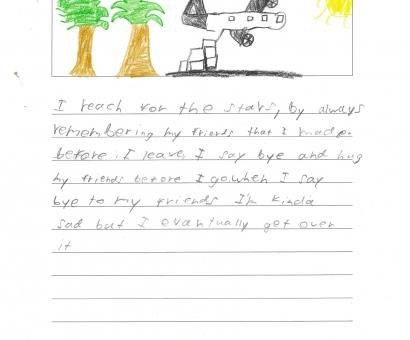 I reach ror the stars, by always
remembering my friends that I made.
before. I leave, I say bye and hug
my friends before I go. when I say
bye to my friends I'm kinda
sad but I evantually get over
it